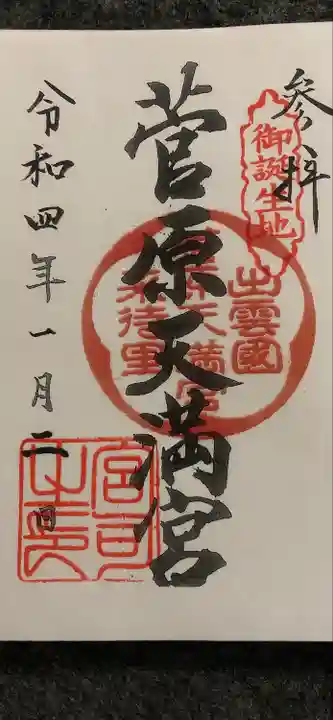 参拝
御誕生地
菅原天満宮
出雲國
菅原天満宮
来待里
令和四年一月二日
宮司之印